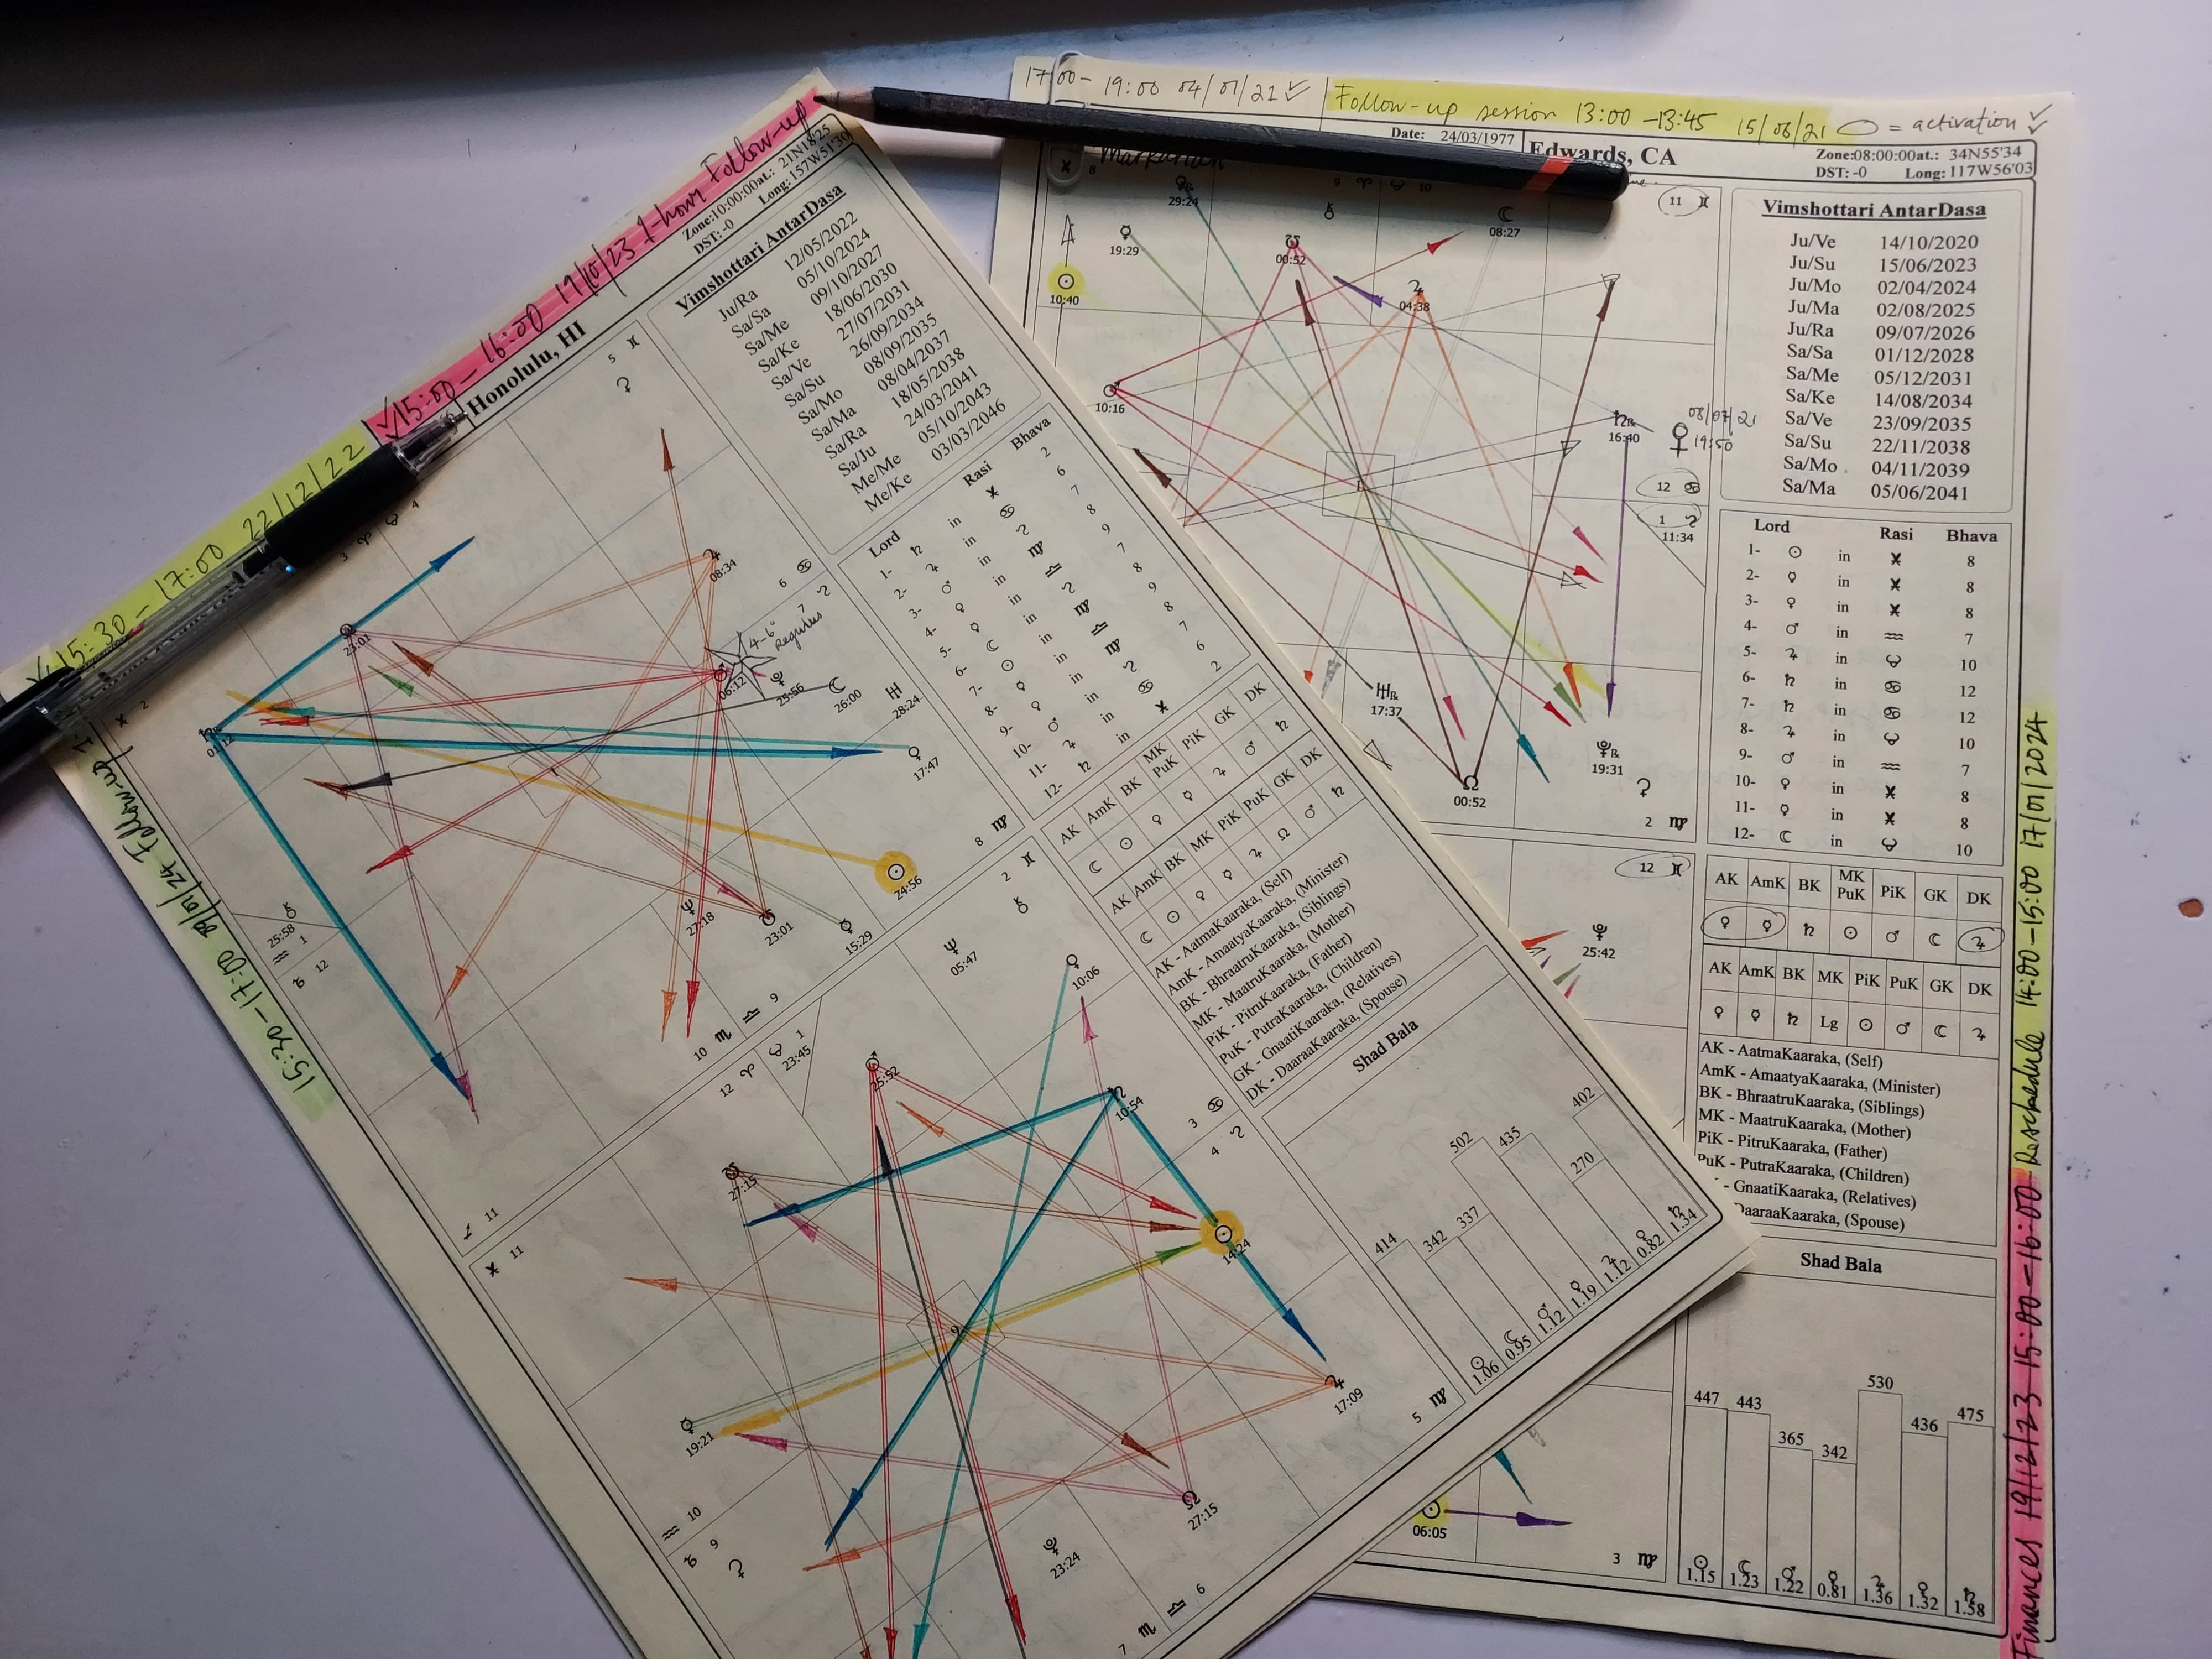 17:00 - 19:00 04/01/21 ✓
Follow-up session 13:00 - 13:45 15/06/21
= activation ✓
Date: 24/03/1977
Edwards, CA
Zone:08:00:00at.: 34N55'34
DST: -0 Long: 117W56'03
8
9 ♈ ♉ 10
11 ♊
29:24
19:29
00:52
08:27
10:40
04:38
10:16
16:40
08/07/21
19:50
12 ♋
1 ♌
11:34
17:37
19:31
00:52
2 ♍
Vimshottari AntarDasa
Ju/Ve 14/10/2020
Ju/Su 15/06/2023
Ju/Mo 02/04/2024
Ju/Ma 02/08/2025
Ju/Ra 09/07/2026
Sa/Sa 01/12/2028
Sa/Me 05/12/2031
Sa/Ke 14/08/2034
Sa/Ve 23/09/2035
Sa/Su 22/11/2038
Sa/Mo 04/11/2039
Sa/Ma 05/06/2041
Lord Rasi Bhava
1- ☉ in ♓ 8
2- ☿ in ♓ 8
3- ♀ in ♓ 8
4- ♂ in ♒ 7
5- ♃ in ♉ 10
6- ♄ in ♋ 12
7- ♄ in ♋ 12
8- ♃ in ♉ 10
9- ♂ in ♒ 7
10- ♀ in ♓ 8
11- ☿ in ♓ 8
12- ☾ in ♉ 10
12 ♊
25:42
AK AmK BK MK PuK PiK GK DK
♀ ☿ ♄ ☉ ♂ ☾ ♃
AK AmK BK MK PiK PuK GK DK
♀ ☿ ♄ Lg ☉ ♂ ☾ ♃
AK - AatmaKaaraka, (Self)
AmK - AmaatyaKaaraka, (Minister)
BK - BhraatruKaaraka, (Siblings)
MK - MaatruKaaraka, (Mother)
PiK - PitruKaaraka, (Father)
PuK - PutraKaaraka, (Children)
- GnaatiKaaraka, (Relatives)
DaaraKaaraka, (Spouse)
Shad Bala
447 443 365 342 530 436 475
☉ ☾ ♂ ☿ ♃ ♀ ♄
1.15 1.23 1.22 0.81 1.36 1.32 1.58
06:05
3 ♍
Finances 19/12/23 15:00-16:00 - Reschedule 14:00-15:00 17/01/2024
✓15:30 - 17:00 22/12/22
✓15:00 - 16:00 19/10/23 1-hour Follow-up
15:30 - 17:00 Follow-up
Honolulu, HI
Zone:10:00:00at.: 21N18'25
DST: -0 Long: 157W51'30
Vimshottari AntarDasa
Ju/Ra 12/05/2022
Sa/Sa 05/10/2024
Sa/Me 09/10/2027
Sa/Ke 18/06/2030
Sa/Ve 27/07/2031
Sa/Su 26/09/2034
Sa/Mo 08/09/2035
Sa/Ma 08/04/2037
Sa/Ra 18/05/2038
Sa/Ju 24/03/2041
Me/Me 05/10/2043
Me/Ke 03/03/2046
♓ 2
3 ♈ ♉ 4
5 ♊
23:01
08:34
6 ♋
7 ♌
4-6°
Regulus
06:12
25:56
26:00
28:24
17:47
24:56
15:29
23:01
27:18
25:58
♒ 1
♑ 12
8 ♍
10 ♏ ♎ 9
♐ 11
Lord Rasi Bhava
1- ♄ in ♓ 2
2- ♃ in ♋ 6
3- ♂ in ♌ 7
4- ♀ in ♍ 8
5- ☿ in ♎ 9
6- ☾ in ♌ 7
7- ☉ in ♍ 8
8- ☿ in ♎ 9
9- ♀ in ♍ 8
10- ♂ in ♌ 7
11- ♃ in ♋ 6
12- ♄ in ♓ 2
AK AmK BK MK PuK PiK GK DK
☾ ☉ ♀ ☿ ♃ ♂ ♄
AK AmK BK MK PiK PuK GK DK
☾ ☉ ♀ ☿ ♃ ☊ ♂ ♄
AK - AatmaKaaraka, (Self)
AmK - AmaatyaKaaraka, (Minister)
BK - BhraatruKaaraka, (Siblings)
MK - MaatruKaaraka, (Mother)
PiK - PitruKaaraka, (Father)
PuK - PutraKaaraka, (Children)
GK - GnaatiKaaraka, (Relatives)
DK - DaaraKaaraka, (Spouse)
♓ 11
12 ♈ ♉ 1
23:45
2 ♊
05:47
10:06
25:52
10:54
27:15
3 ♋
4 ♌
14:24
17:09
19:21
27:15
23:24
♒ 10
♑ 9
5 ♍
7 ♏ ♎ 6
Shad Bala
414 342 337 502 435 270 402
☉ ☾ ♂ ☿ ♃ ♀ ♄
1.06 0.95 1.12 1.19 1.12 0.82 1.34